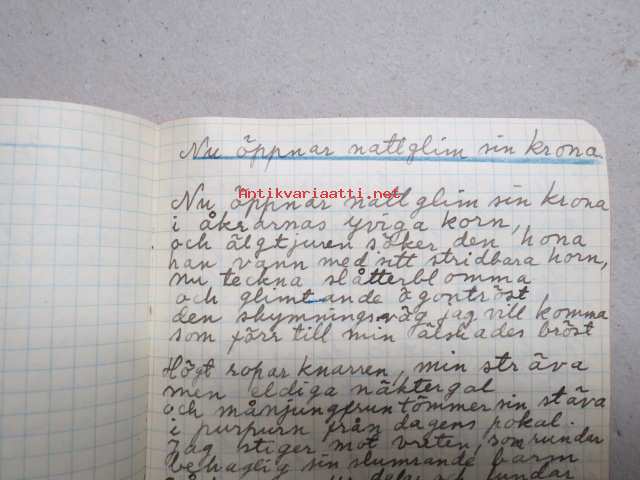 Nu öppnar nattglim sin krona
Antikvariaatti.net
Nu öppnar nattglim sin krona
i åkrarnas yviga korn,
och älgtjuren söker den hona
han vann med sitt stridbara horn,
nu teckna slåtterblomma
och glimtande ögontröst
den skymningsväg jag vill komma
som förr till min älskades bröst
Högt ropar knarren, min sträva
men eldiga näktergal
och månjungfrun tömmer sin stäva
i purpurn från dagens pokal.
Jag stiger mot vreten, som rundar
behaglig sin slumrande barm